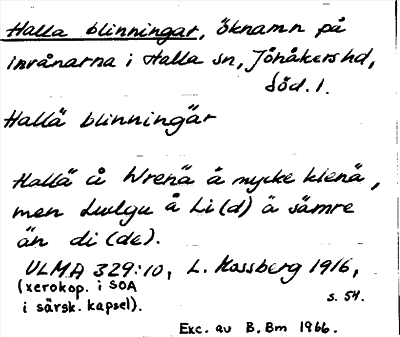 Halla blinningar, öknamn på
invånarna i Halla sn, Jönåkers hd,
Söd. l.
Hallä blinningär
Hallä å Wrenä å mycke klenä,
men Lulgu å Li(d) ä sämre
än di (de).
ULMA 329:10, L. Mossberg 1916,
(xerokop. i SOA
i särsk. kapsel).
s. 54.
Exc. av B. Bm 1966.